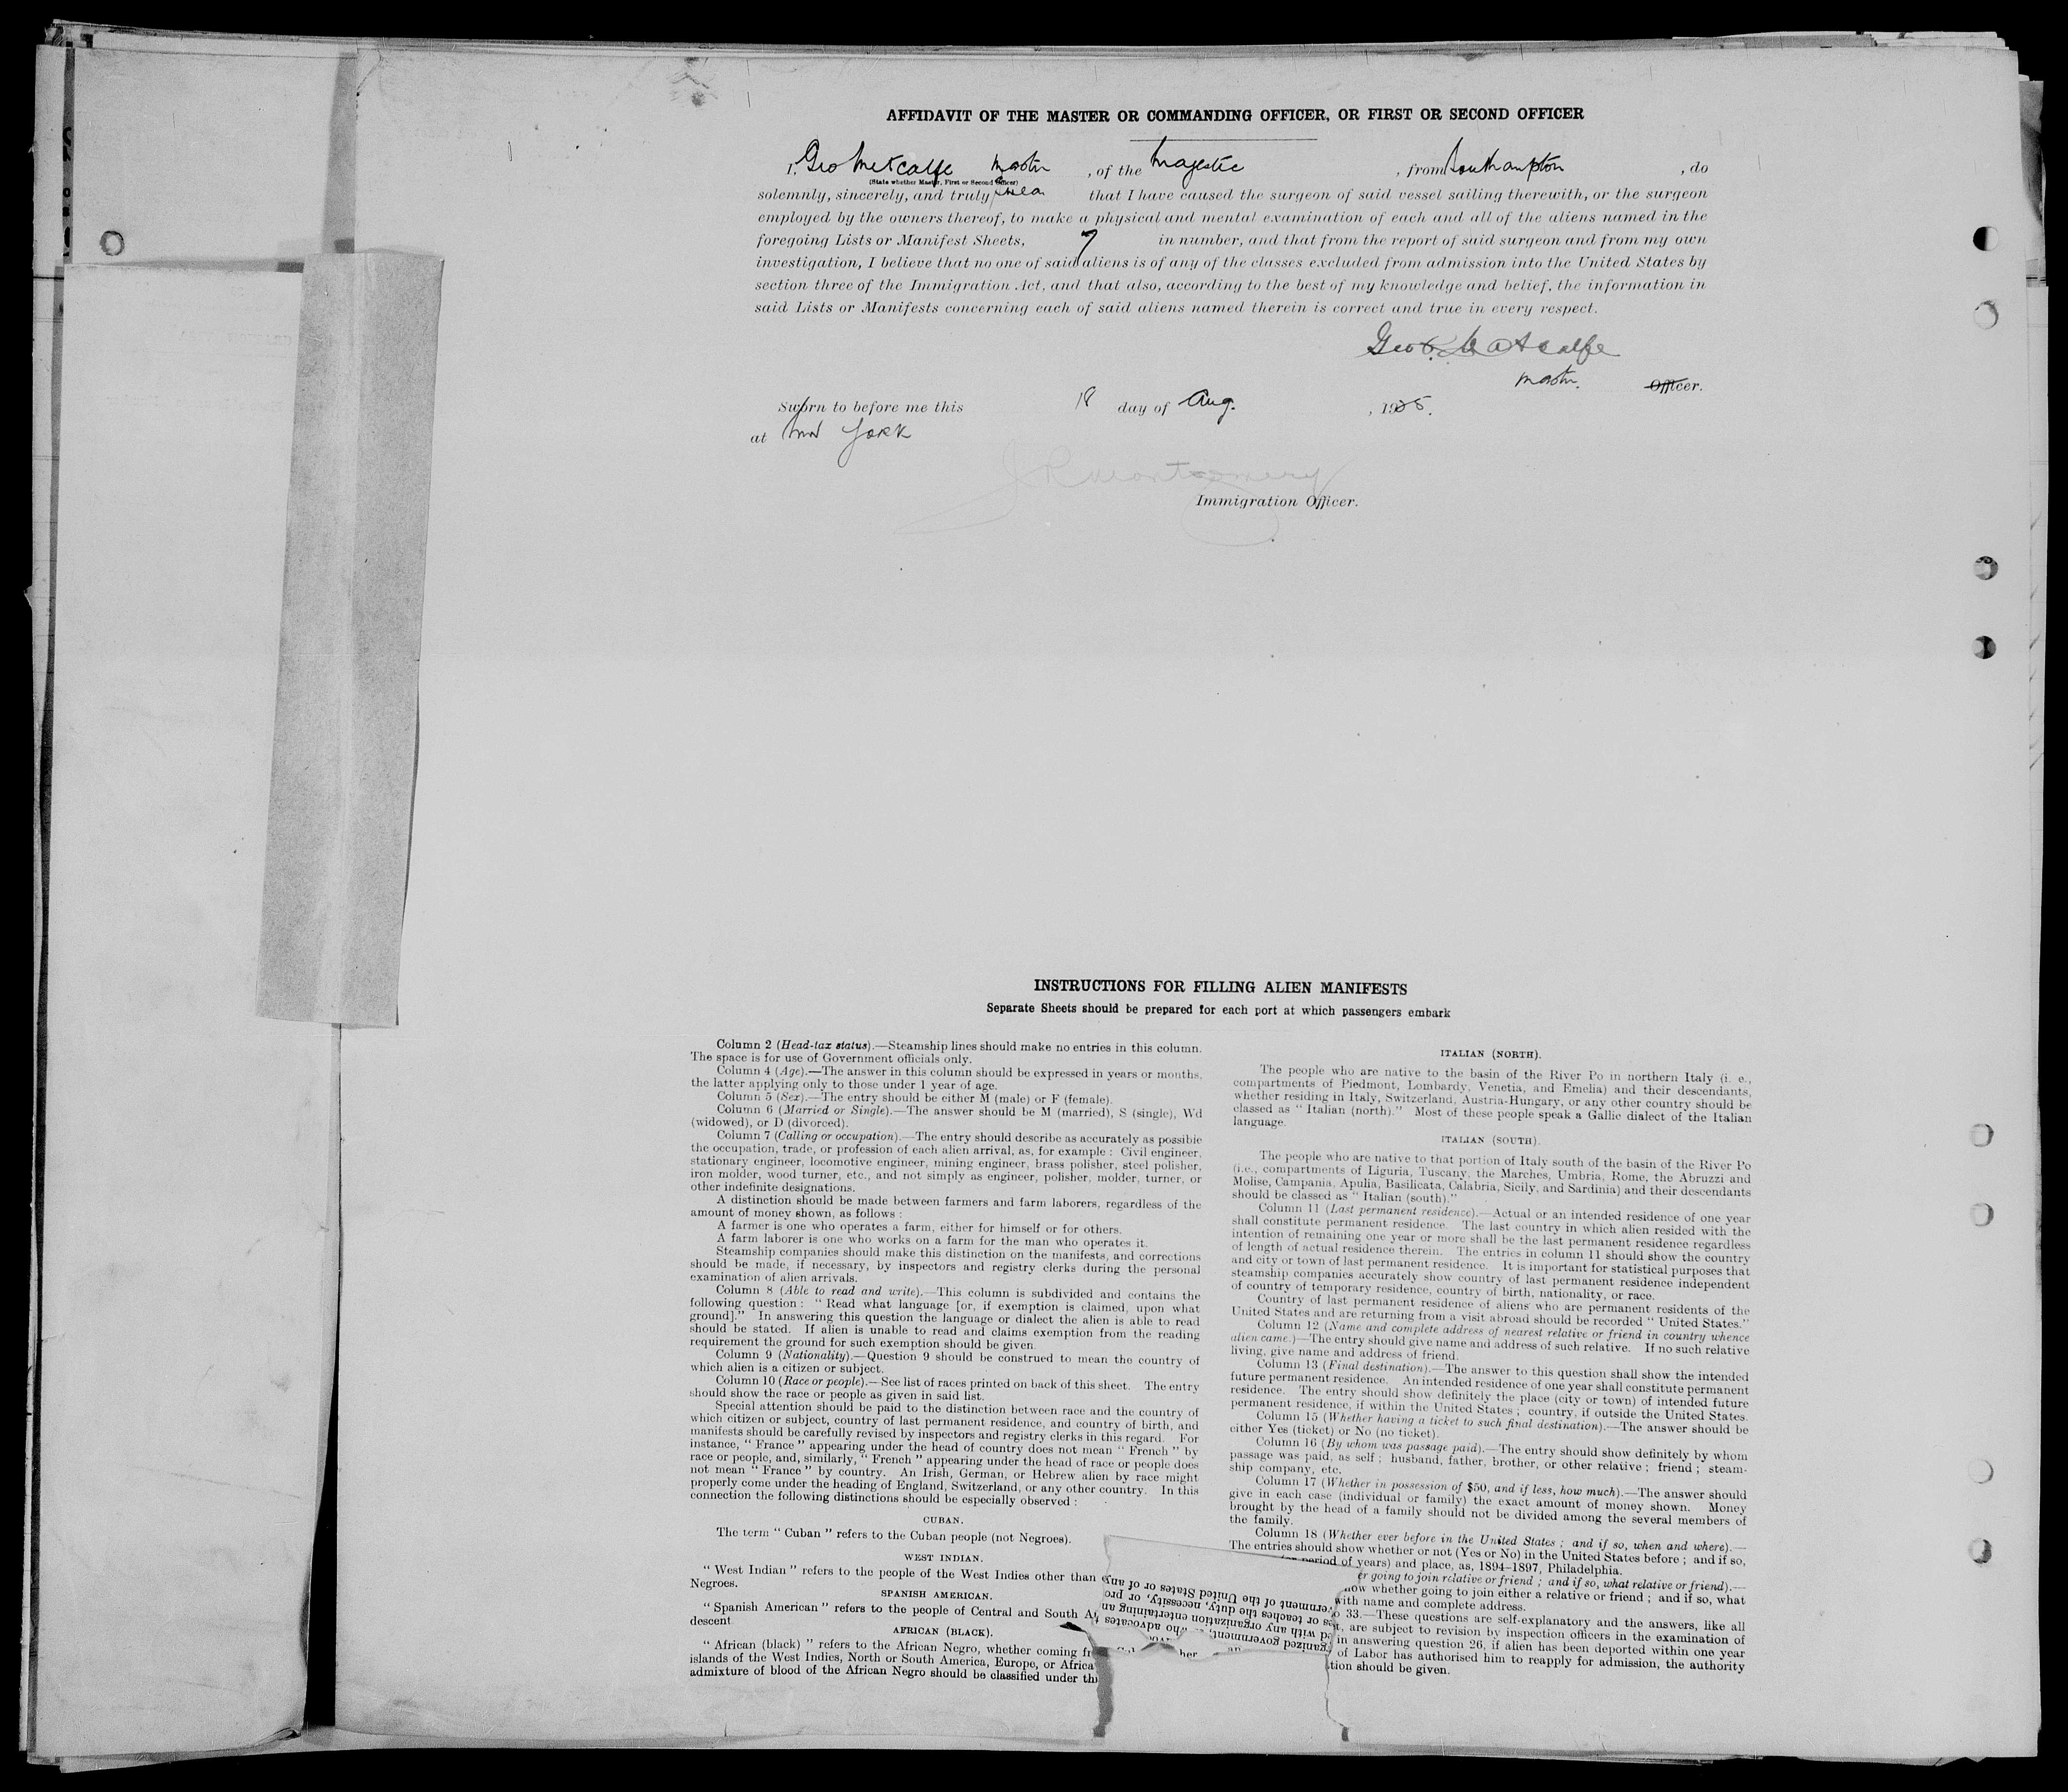 AFFIDAVIT OF THE MASTER OR COMMANDING OFFICER, OR FIRST OR SECOND OFFICER
I, Geo Metcalfe Master , of the Majestic , from Southampton , do
(State whether Master, First or Second Officer)
solemnly, sincerely, and truly swear that I have caused the surgeon of said vessel sailing therewith, or the surgeon
employed by the owners thereof, to make a physical and mental examination of each and all of the aliens named in the
foregoing Lists or Manifest Sheets, 7 in number, and that from the report of said surgeon and from my own
investigation, I believe that no one of said aliens is of any of the classes excluded from admission into the United States by
section three of the Immigration Act, and that also, according to the best of my knowledge and belief, the information in
said Lists or Manifests concerning each of said aliens named therein is correct and true in every respect.
Geo R. Metcalfe
Master. Officer.
Sworn to before me this 18 day of Aug. , 1925.
at New York
J R Montgomery
Immigration Officer.
INSTRUCTIONS FOR FILLING ALIEN MANIFESTS
Separate Sheets should be prepared for each port at which passengers embark
Column 2 (Head-tax status).—Steamship lines should make no entries in this column.
The space is for use of Government officials only.
Column 4 (Age).—The answer in this column should be expressed in years or months,
the latter applying only to those under 1 year of age.
Column 5 (Sex).—The entry should be either M (male) or F (female).
Column 6 (Married or Single).—The answer should be M (married), S (single), Wd
(widowed), or D (divorced).
Column 7 (Calling or occupation).—The entry should describe as accurately as possible
the occupation, trade, or profession of each alien arrival, as, for example : Civil engineer,
stationary engineer, locomotive engineer, mining engineer, brass polisher, steel polisher,
iron molder, wood turner, etc., and not simply as engineer, polisher, molder, turner, or
other indefinite designations.
A distinction should be made between farmers and farm laborers, regardless of the
amount of money shown, as follows :
A farmer is one who operates a farm, either for himself or for others.
A farm laborer is one who works on a farm for the man who operates it.
Steamship companies should make this distinction on the manifests, and corrections
should be made, if necessary, by inspectors and registry clerks during the personal
examination of alien arrivals.
Column 8 (Able to read and write).—This column is subdivided and contains the
following question : “ Read what language [or, if exemption is claimed, upon what
ground].” In answering this question the language or dialect the alien is able to read
should be stated. If alien is unable to read and claims exemption from the reading
requirement the ground for such exemption should be given.
Column 9 (Nationality).—Question 9 should be construed to mean the country of
which alien is a citizen or subject.
Column 10 (Race or people).—See list of races printed on back of this sheet. The entry
should show the race or people as given in said list.
Special attention should be paid to the distinction between race and the country of
which citizen or subject, country of last permanent residence, and country of birth, and
manifests should be carefully revised by inspectors and registry clerks in this regard. For
instance, “ France ” appearing under the head of country does not mean “ French ” by
race or people, and, similarly, “ French ” appearing under the head of race or people does
not mean “ France ” by country. An Irish, German, or Hebrew alien by race might
properly come under the heading of England, Switzerland, or any other country. In this
connection the following distinctions should be especially observed :
CUBAN.
The term “ Cuban ” refers to the Cuban people (not Negroes).
WEST INDIAN.
“ West Indian ” refers to the people of the West Indies other than
Negroes.
SPANISH AMERICAN.
“ Spanish American ” refers to the people of Central and South A
descent
AFRICAN (BLACK).
“ African (black) ” refers to the African Negro, whether coming fr
islands of the West Indies, North or South America, Europe, or Africa
admixture of blood of the African Negro should be classified under th
ITALIAN (NORTH).
The people who are native to the basin of the River Po in northern Italy (i. e.,
compartments of Piedmont, Lombardy, Venetia, and Emelia) and their descendants,
whether residing in Italy, Switzerland, Austria-Hungary, or any other country should be
classed as “ Italian (north).” Most of these people speak a Gallic dialect of the Italian
language.
ITALIAN (SOUTH).
The people who are native to that portion of Italy south of the basin of the River Po
(i.e., compartments of Liguria, Tuscany, the Marches, Umbria, Rome, the Abruzzi and
Molise, Campania, Apulia, Basilicata, Calabria, Sicily, and Sardinia) and their descendants
should be classed as “ Italian (south).”
Column 11 (Last permanent residence).—Actual or an intended residence of one year
shall constitute permanent residence. The last country in which alien resided with the
intention of remaining one year or more shall be the last permanent residence regardless
of length of actual residence therein. The entries in column 11 should show the country
and city or town of last permanent residence. It is important for statistical purposes that
steamship companies accurately show country of last permanent residence independent
of country of temporary residence, country of birth, nationality, or race.
Country of last permanent residence of aliens who are permanent residents of the
United States and are returning from a visit abroad should be recorded “ United States.”
Column 12 (Name and complete address of nearest relative or friend in country whence
alien came.)—The entry should give name and address of such relative. If no such relative
living, give name and address of friend.
Column 13 (Final destination).—The answer to this question shall show the intended
future permanent residence. An intended residence of one year shall constitute permanent
residence. The entry should show definitely the place (city or town) of intended future
permanent residence, if within the United States ; country, if outside the United States.
Column 15 (Whether having a ticket to such final destination).—The answer should be
either Yes (ticket) or No (no ticket).
Column 16 (By whom was passage paid).—The entry should show definitely by whom
passage was paid, as self ; husband, father, brother, or other relative ; friend ; steam-
ship company, etc.
Column 17 (Whether in possession of $50, and if less, how much).—The answer should
give in each case (individual or family) the exact amount of money shown. Money
brought by the head of a family should not be divided among the several members of
the family.
Column 18 (Whether ever before in the United States ; and if so, when and where).—
The entries should show whether or not (Yes or No) in the United States before ; and if so,
period of years) and place, as, 1894–1897, Philadelphia.
er going to join relative or friend ; and if so, what relative or friend).—
how whether going to join either a relative or friend ; and if so, what
with name and complete address.
o 33.—These questions are self-explanatory and the answers, like all
, are subject to revision by inspection officers in the examination of
in answering question 26, if alien has been deported within one year
of Labor has authorised him to reapply for admission, the authority
tion should be given.
ganized government, who advocates
ed with any organization entertaining an
es or teaches the duty, necessity, or pro
vernment of the United States or of any